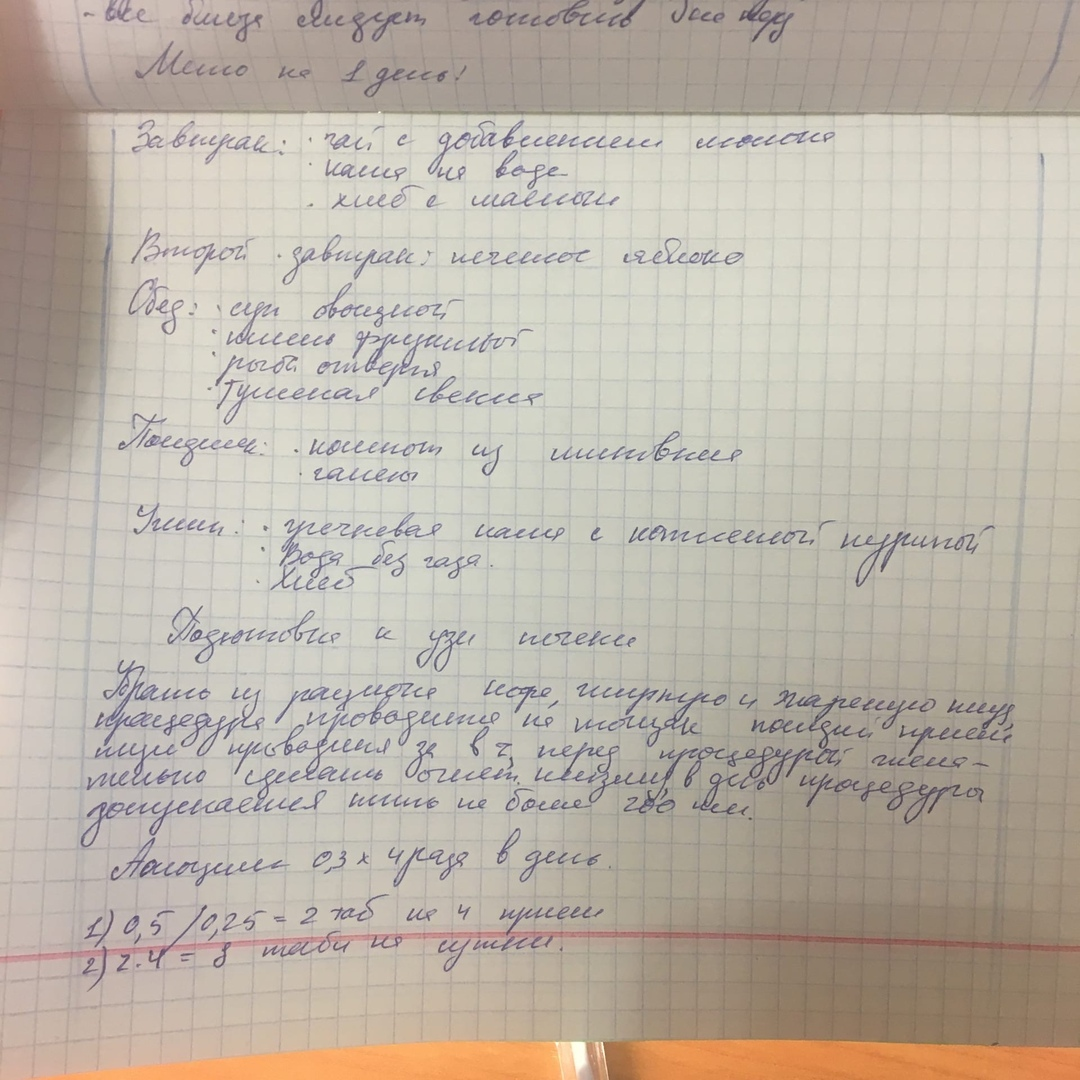 - все блюда следует готовить
Меню на 1 день!
Завтрак: · чай с добавлением молока
· каша на воде
· хлеб с маслом
Второй · завтрак: печеное яблоко
Обед: · суп овощной
· кисель фруктовый
· рыба отварная
· тушеная свекла
Полдник: · компот из шиповника
· галеты
Ужин: · гречневая каша с нежирной курицей
· Вода без газа.
· Хлеб
Подготовка к узи печени
Убрать из рациона кофе, жирную и жареную пищу,
процедура проводится на тощак последний прием
пищи проводится за 8 ч, перед процедурой жела-
тельно сделать очист. клизму, в день процедуры
допускается пить не более 200 мл.
0,3 x 4 раза в день.
1) 0,5 / 0,25 = 2 таб на 4 прием
2) 2·4 = 8 табл на сутки.